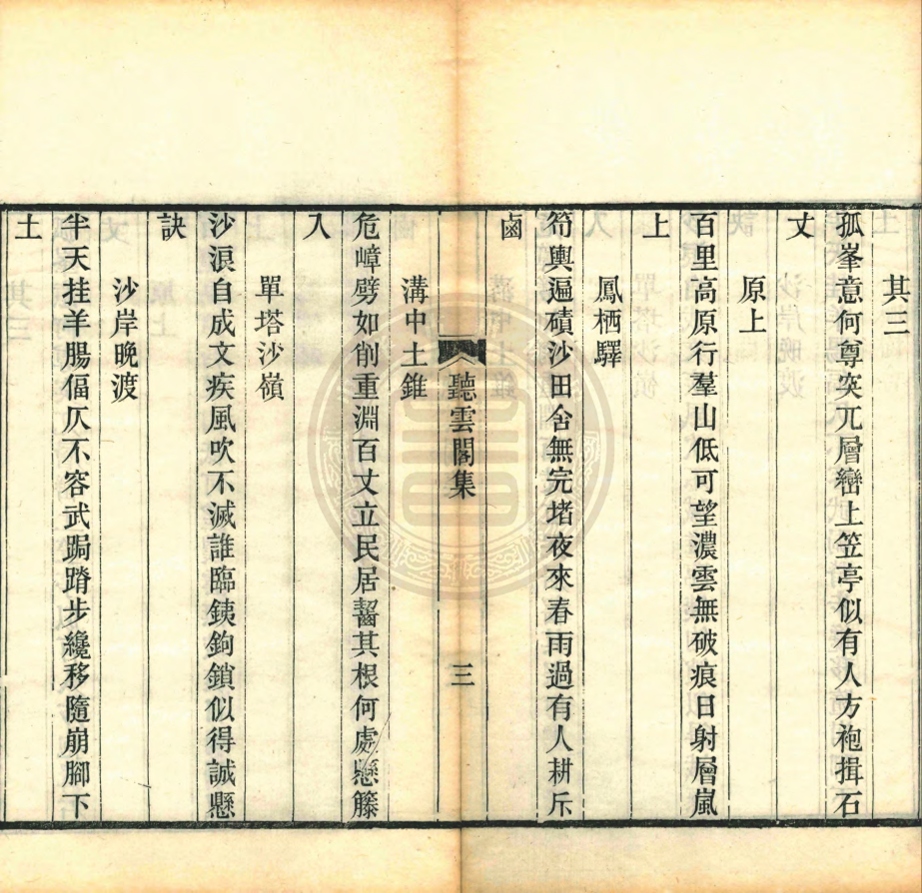 其三
孤峯意何尊突兀層巒上笠亭似有人方袍揖石
丈
原上
百里高原行羣山低可望濃雲無破痕日射層嵐
上
鳳栖驛
筍輿遍磧沙田舍無完堵夜來春雨過有人耕斥
鹵
聽雲閣集
三
溝中土錐
危嶂劈如削重淵百丈立民居齧其根何處懸籐
入
單塔沙嶺
沙浪自成文疾風吹不滅誰臨銕鉤鎖似得誠懸
訣
沙岸晚渡
半天挂羊腸偪仄不容武跼蹐步纔移隨崩腳下
土